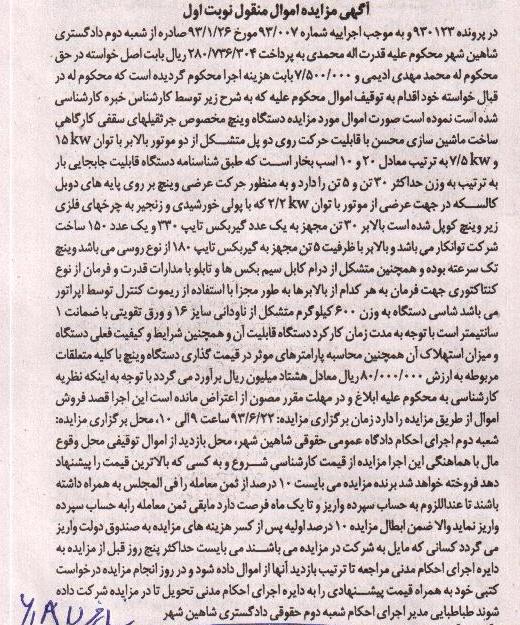 آگهی مزایده اموال منقول نوبت اول
در پرونده ۹۳۰۱۲۳ و به موجب اجراییه شماره ۹۳/۰۰۷ مورخ ۹۳/۱/۲۶ صادره از شعبه دوم دادگستری
شاهین شهر محکوم علیه قدرت اله محمدی به پرداخت ۲۸۰/۷۳۶/۳۰۴ ریال بابت اصل خواسته در حق
محکوم له محمد مهدی ادیمی و ۷/۵۰۰/۰۰۰ بابت هزینه اجرا محکوم گردیده است که محکوم له در
قبال خواسته خود اقدام به توقیف اموال محکوم علیه که به شرح زیر توسط کارشناس خبره کارشناسی
شده است نموده است صورت اموال مورد مزایده دستگاه وینچ مخصوص جرثقیلهای سقفی کارگاهی
ساخت ماشین سازی محسن با قابلیت حرکت روی دو پل متشکل از دو موتور بالابر با توان ۱۵ kw
و ۷/۵ kw به ترتیب معادل ۲۰ و ۱۰ اسب بخار است که طبق شناسنامه دستگاه قابلیت جابجایی بار
به ترتیب به وزن حداکثر ۳۰ تن و ۵ تن را دارد و به منظور حرکت عرضی وینچ بر روی پایه های دوبل
کالسکه در جهت عرضی از موتور با توان ۲/۲ kw که با پولی خورشیدی و زنجیر به چرخهای فلزی
زیر وینچ کوپل شده است بالابر ۳۰ تن مجهز به یک عدد گیربکس تایپ ۳۳۰ و یک عدد ۱۵۰ ساخت
شرکت توانکار می باشد و بالابر با ظرفیت ۵ تن مجهز به گیربکس تایپ ۱۸۰ از نوع روسی می باشد وینچ
تک سرعته بوده و همچنین متشکل از درام کابل سیم بکس ها و تابلو با مدارات قدرت و فرمان از نوع
کنتاکتوری جهت فرمان به هر کدام از بالابرها به طور مجزا با استفاده از ریموت کنترل توسط اپراتور
می باشد شاسی دستگاه به وزن ۶۰۰ کیلوگرم متشکل از ناودانی سایز ۱۶ و ورق تقویتی با ضمانت ۱
سانتیمتر است با توجه به مدت زمان کارکرد دستگاه قابلیت آن و همچنین شرایط و کیفیت فعلی دستگاه
و میزان استهلاک آن همچنین محاسبه پارامترهای موثر در قیمت گذاری دستگاه وینچ با کلیه متعلقات
مربوطه به ارزش ۸۰/۰۰۰/۰۰۰ ریال معادل هشتاد میلیون ریال برآورد می گردد با توجه به اینکه نظریه
کارشناسی به محکوم علیه ابلاغ و در مهلت مقرر مصون از اعتراض مانده است این اجرا قصد فروش
اموال از طریق مزایده را دارد زمان برگزاری مزایده: ۹۳/۶/۲۲ ساعت ۹ الی ۱۰، محل برگزاری مزایده:
شعبه دوم اجرای احکام دادگاه عمومی حقوقی شاهین شهر، محل بازدید از اموال توقیفی محل وقوع
مال با هماهنگی این اجرا مزایده از قیمت کارشناسی شروع و به کسی که بالاترین قیمت را پیشنهاد
دهد فروخته خواهد شد برنده مزایده می بایست ۱۰ درصد از ثمن معامله را فی المجلس به همراه داشته
باشند تا عنداللزوم به حساب سپرده واریز و تا یک ماه فرصت دارد مابقی ثمن معامله را به حساب سپرده
واریز نماید والا ضمن ابطال مزایده ۱۰ درصد اولیه پس از کسر هزینه های مزایده به صندوق دولت واریز
می گردد کسانی که مایل به شرکت در مزایده می باشند می بایست حداکثر پنج روز قبل از مزایده به
دایره اجرای احکام مدنی مراجعه تا ترتیب بازدید آنها از اموال داده شود و در روز انجام مزایده درخواست
کتبی خود به همراه قیمت پیشنهادی را به دایره اجرای احکام مدنی تحویل تا در مزایده شرکت داده
شوند طباطبایی مدیر اجرای احکام شعبه دوم حقوقی دادگستری شاهین شهر